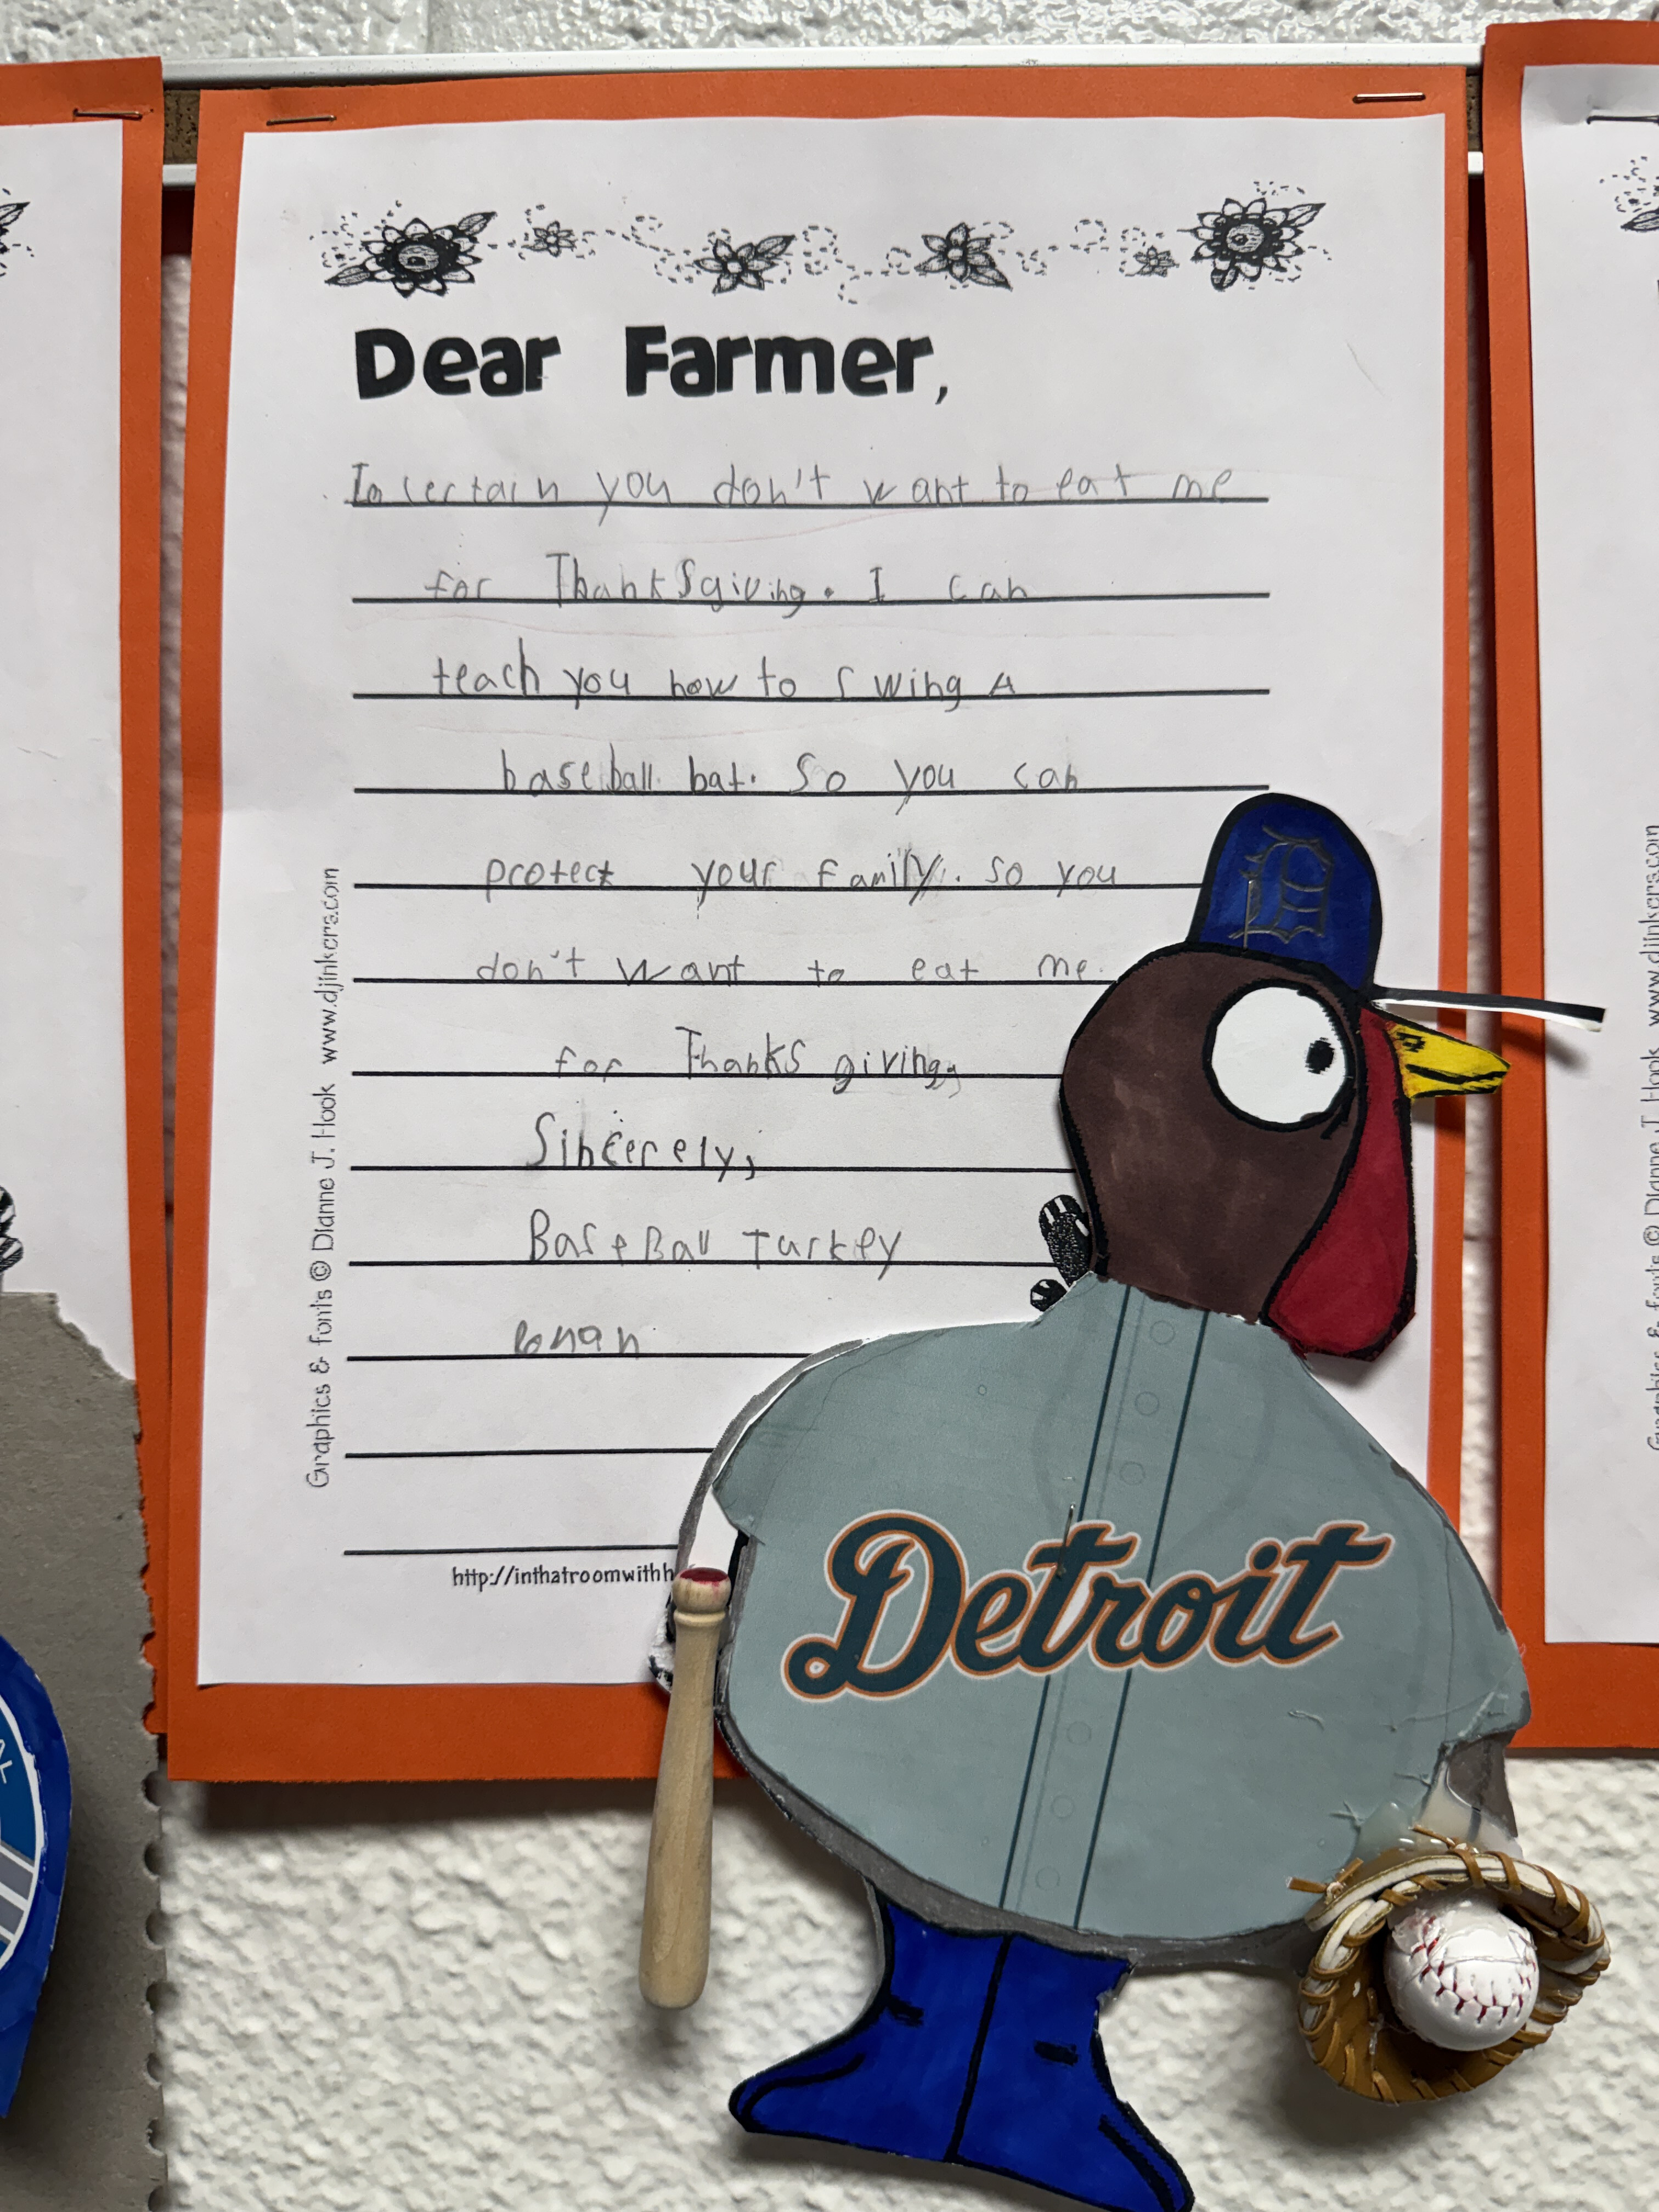 Dear Farmer,
certain you don't want to eat me
for Thanksgiving. I can
teach you how to swing A
baseball bat. So you can
protect your family. so you
don't want to eat me.
for Thanks giving,
Sincerely,
BaseBall Turkey
D
Detroit
Graphics & fonts © Dianne J. Hook www.djinkers.com
http://inthatroomwithh
www.djinkers.com